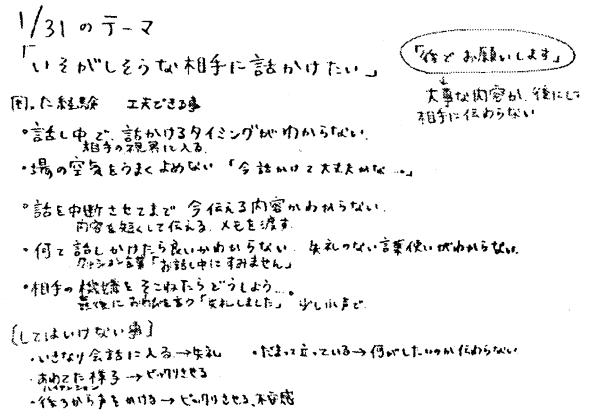 1/31 のテーマ
「いそがしそうな相手に話かけたい」
「後でお願いします」
↓
大事な内容が、後にして
相手に伝わらない
困った経験 工夫できる事
・話し中で、話かけるタイミングがわからない。
相手の視界に入る。
・場の空気をうまくよめない 「今話かけて大丈夫かな…。」
・話を中断させてまで 今伝える内容かわからない。
内容を短くして伝える。メモを渡す。
・何て話しかけたら良いかわからない。失礼のない言葉使いがわからない。
クッション言葉「お話し中にすみません」
・相手の機嫌をそこねたらどうしよう…。
最後におわびを言う「失礼しました」 少し小声で。
[してはいけない事]
・いきなり会話に入る→失礼 ・だまって立っている→何がしたいのか伝わらない
・あわてた様子→ビックリさせる
ハイテンション
・後ろから声をかける→ビックリさせる、不審感